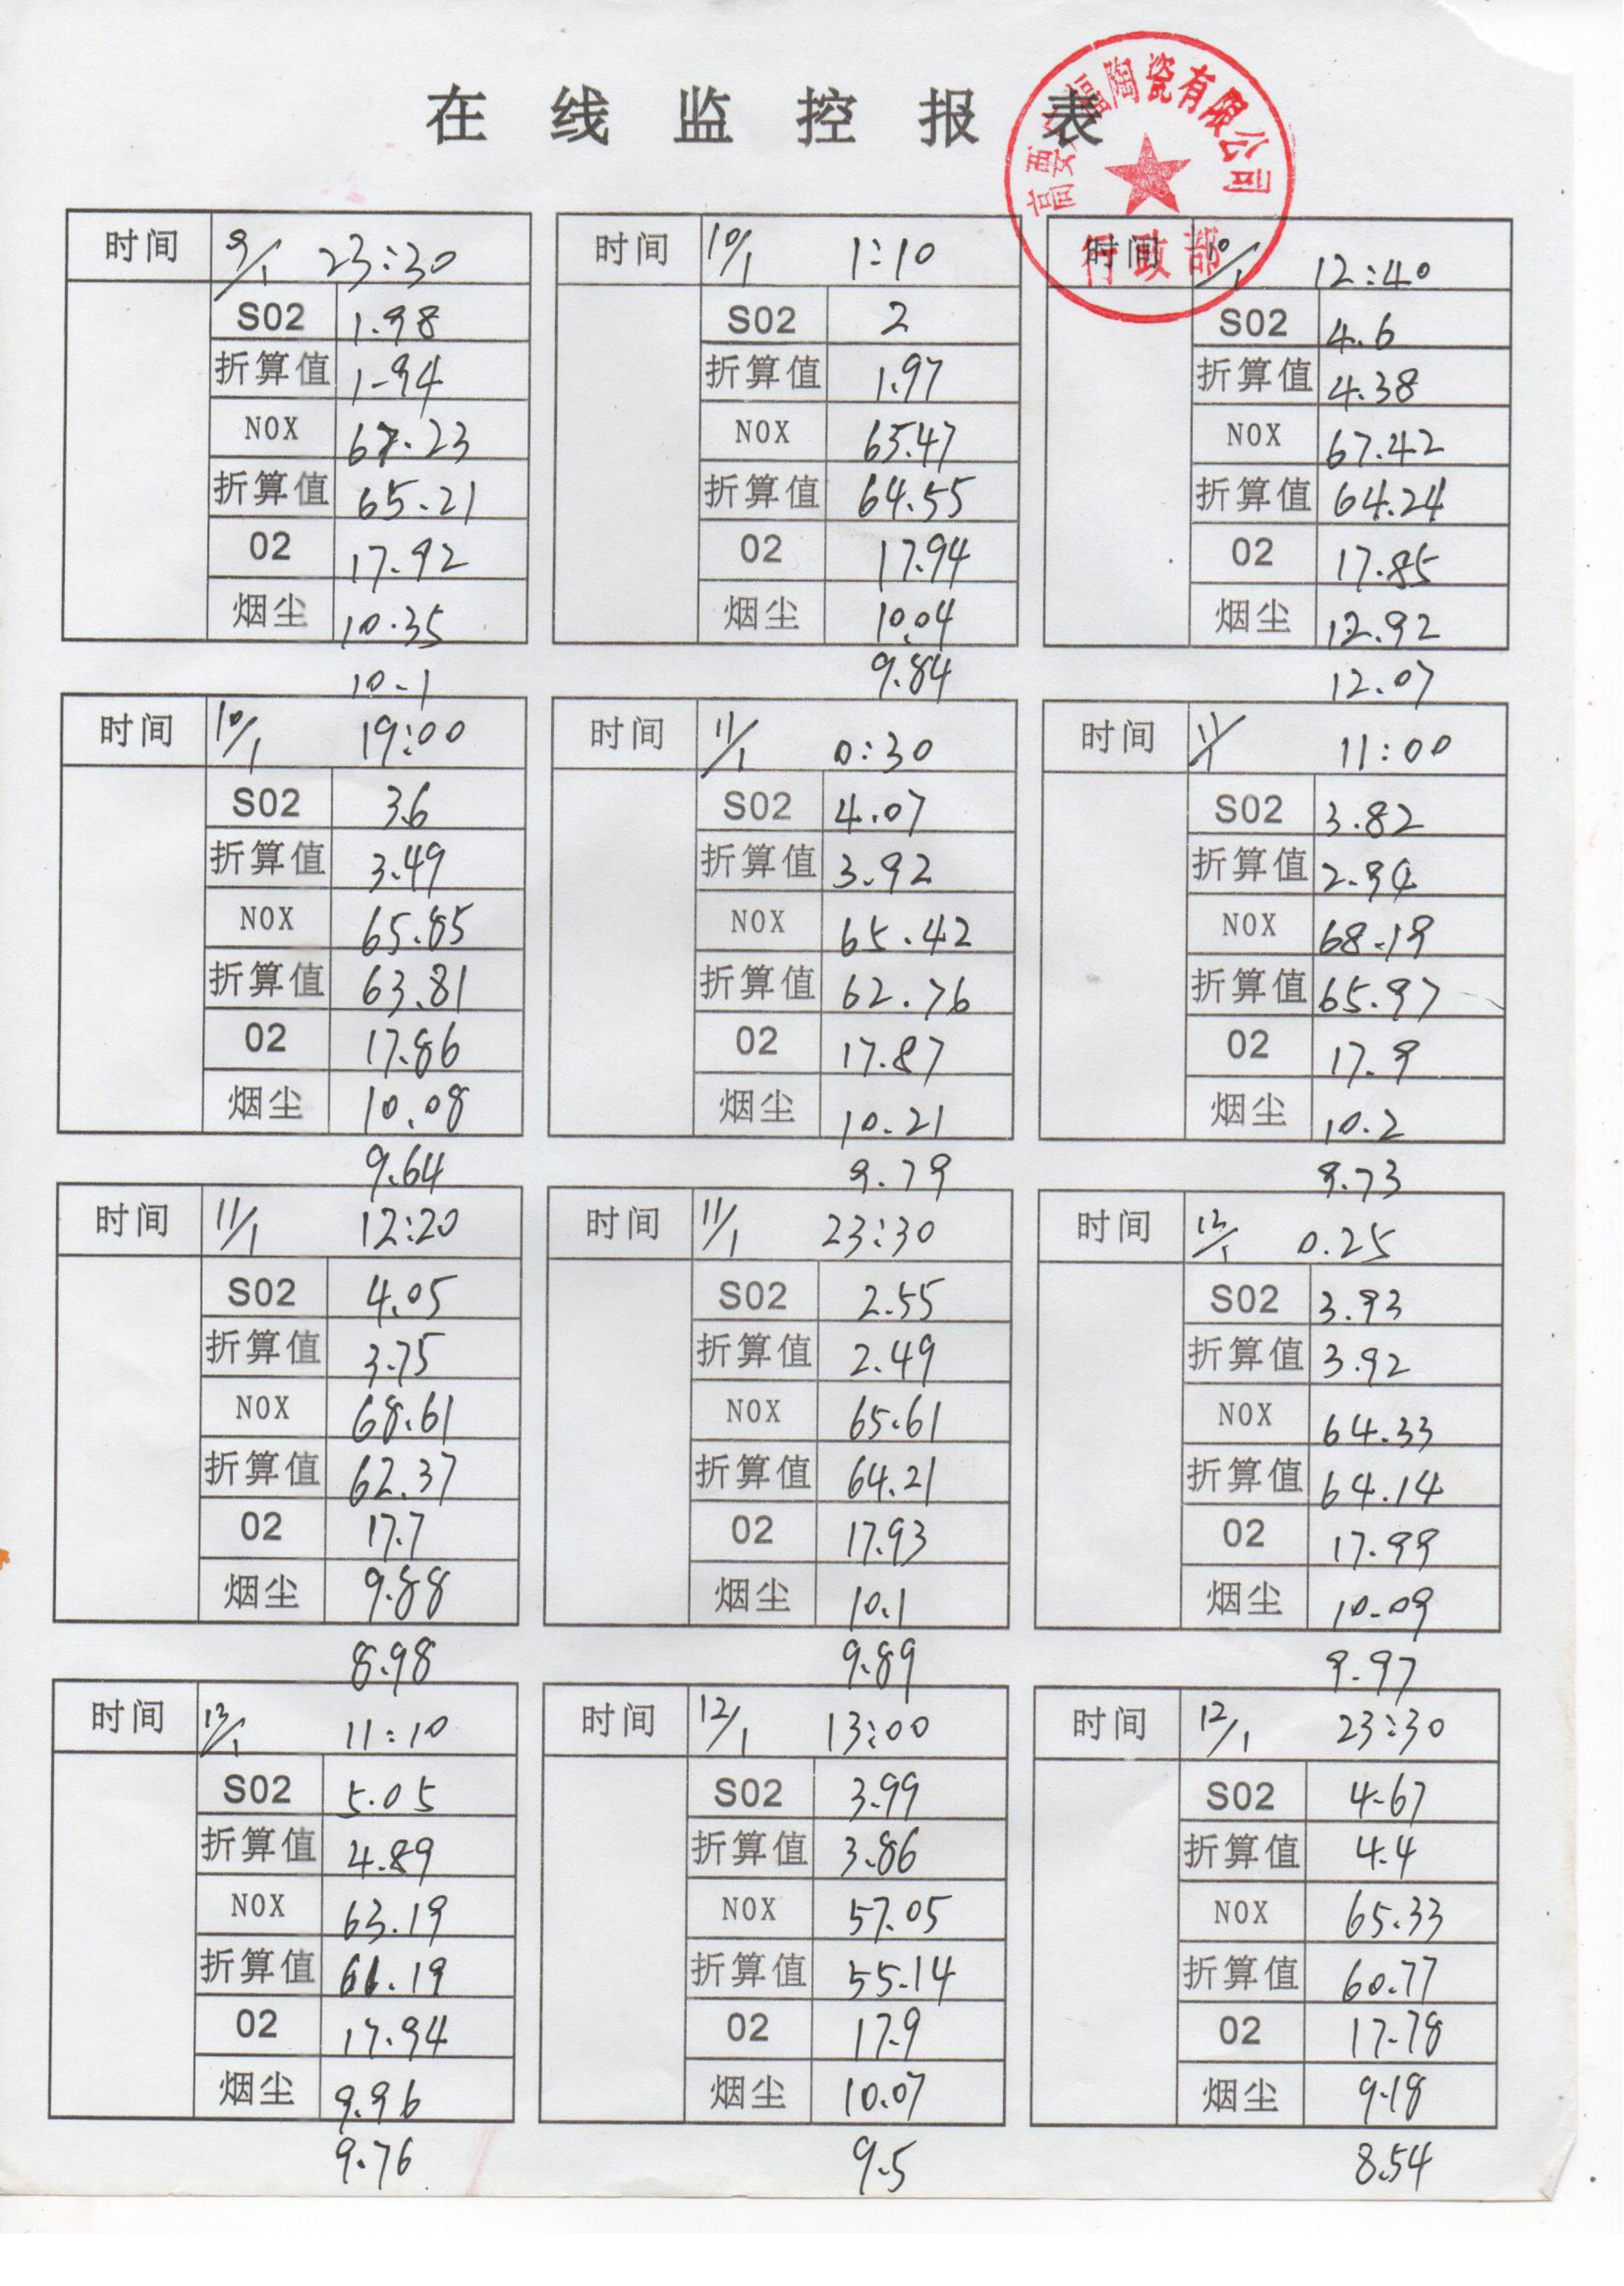 在线监控报表
陶瓷有限公司
行政部
时间 9/1 23:30
SO2 1.98
折算值 1.94
NOX 67.23
折算值 65.21
O2 17.92
烟尘 10.35
10.1
时间 10/1 1:10
SO2 2
折算值 1.97
NOX 65.47
折算值 64.55
O2 17.94
烟尘 10.04
9.84
时间 10/1 12:40
SO2 4.6
折算值 4.38
NOX 67.42
折算值 64.24
O2 17.85
烟尘 12.92
12.07
时间 10/1 19:00
SO2 3.6
折算值 3.49
NOX 65.85
折算值 63.81
O2 17.86
烟尘 10.08
9.64
时间 11/1 0:30
SO2 4.07
折算值 3.92
NOX 65.42
折算值 62.76
O2 17.87
烟尘 10.21
9.79
时间 11/1 11:00
SO2 3.82
折算值 2.94
NOX 68.19
折算值 65.97
O2 17.9
烟尘 10.2
9.73
时间 11/1 12:20
SO2 4.05
折算值 3.75
NOX 68.61
折算值 62.37
O2 17.7
烟尘 9.88
8.98
时间 11/1 23:30
SO2 2.55
折算值 2.49
NOX 65.61
折算值 64.21
O2 17.93
烟尘 10.1
9.89
时间 12/1 0.25
SO2 3.93
折算值 3.92
NOX 64.33
折算值 64.14
O2 17.99
烟尘 10.09
9.97
时间 11:10
SO2 5.05
折算值 4.89
NOX 63.19
折算值 61.19
O2 17.94
烟尘 9.96
9.76
时间 12/1 13:00
SO2 3.99
折算值 3.86
NOX 57.05
折算值 55.14
O2 17.9
烟尘 10.07
9.5
时间 12/1 23:30
SO2 4.67
折算值 4.4
NOX 65.33
折算值 60.77
O2 17.78
烟尘 9.18
8.54